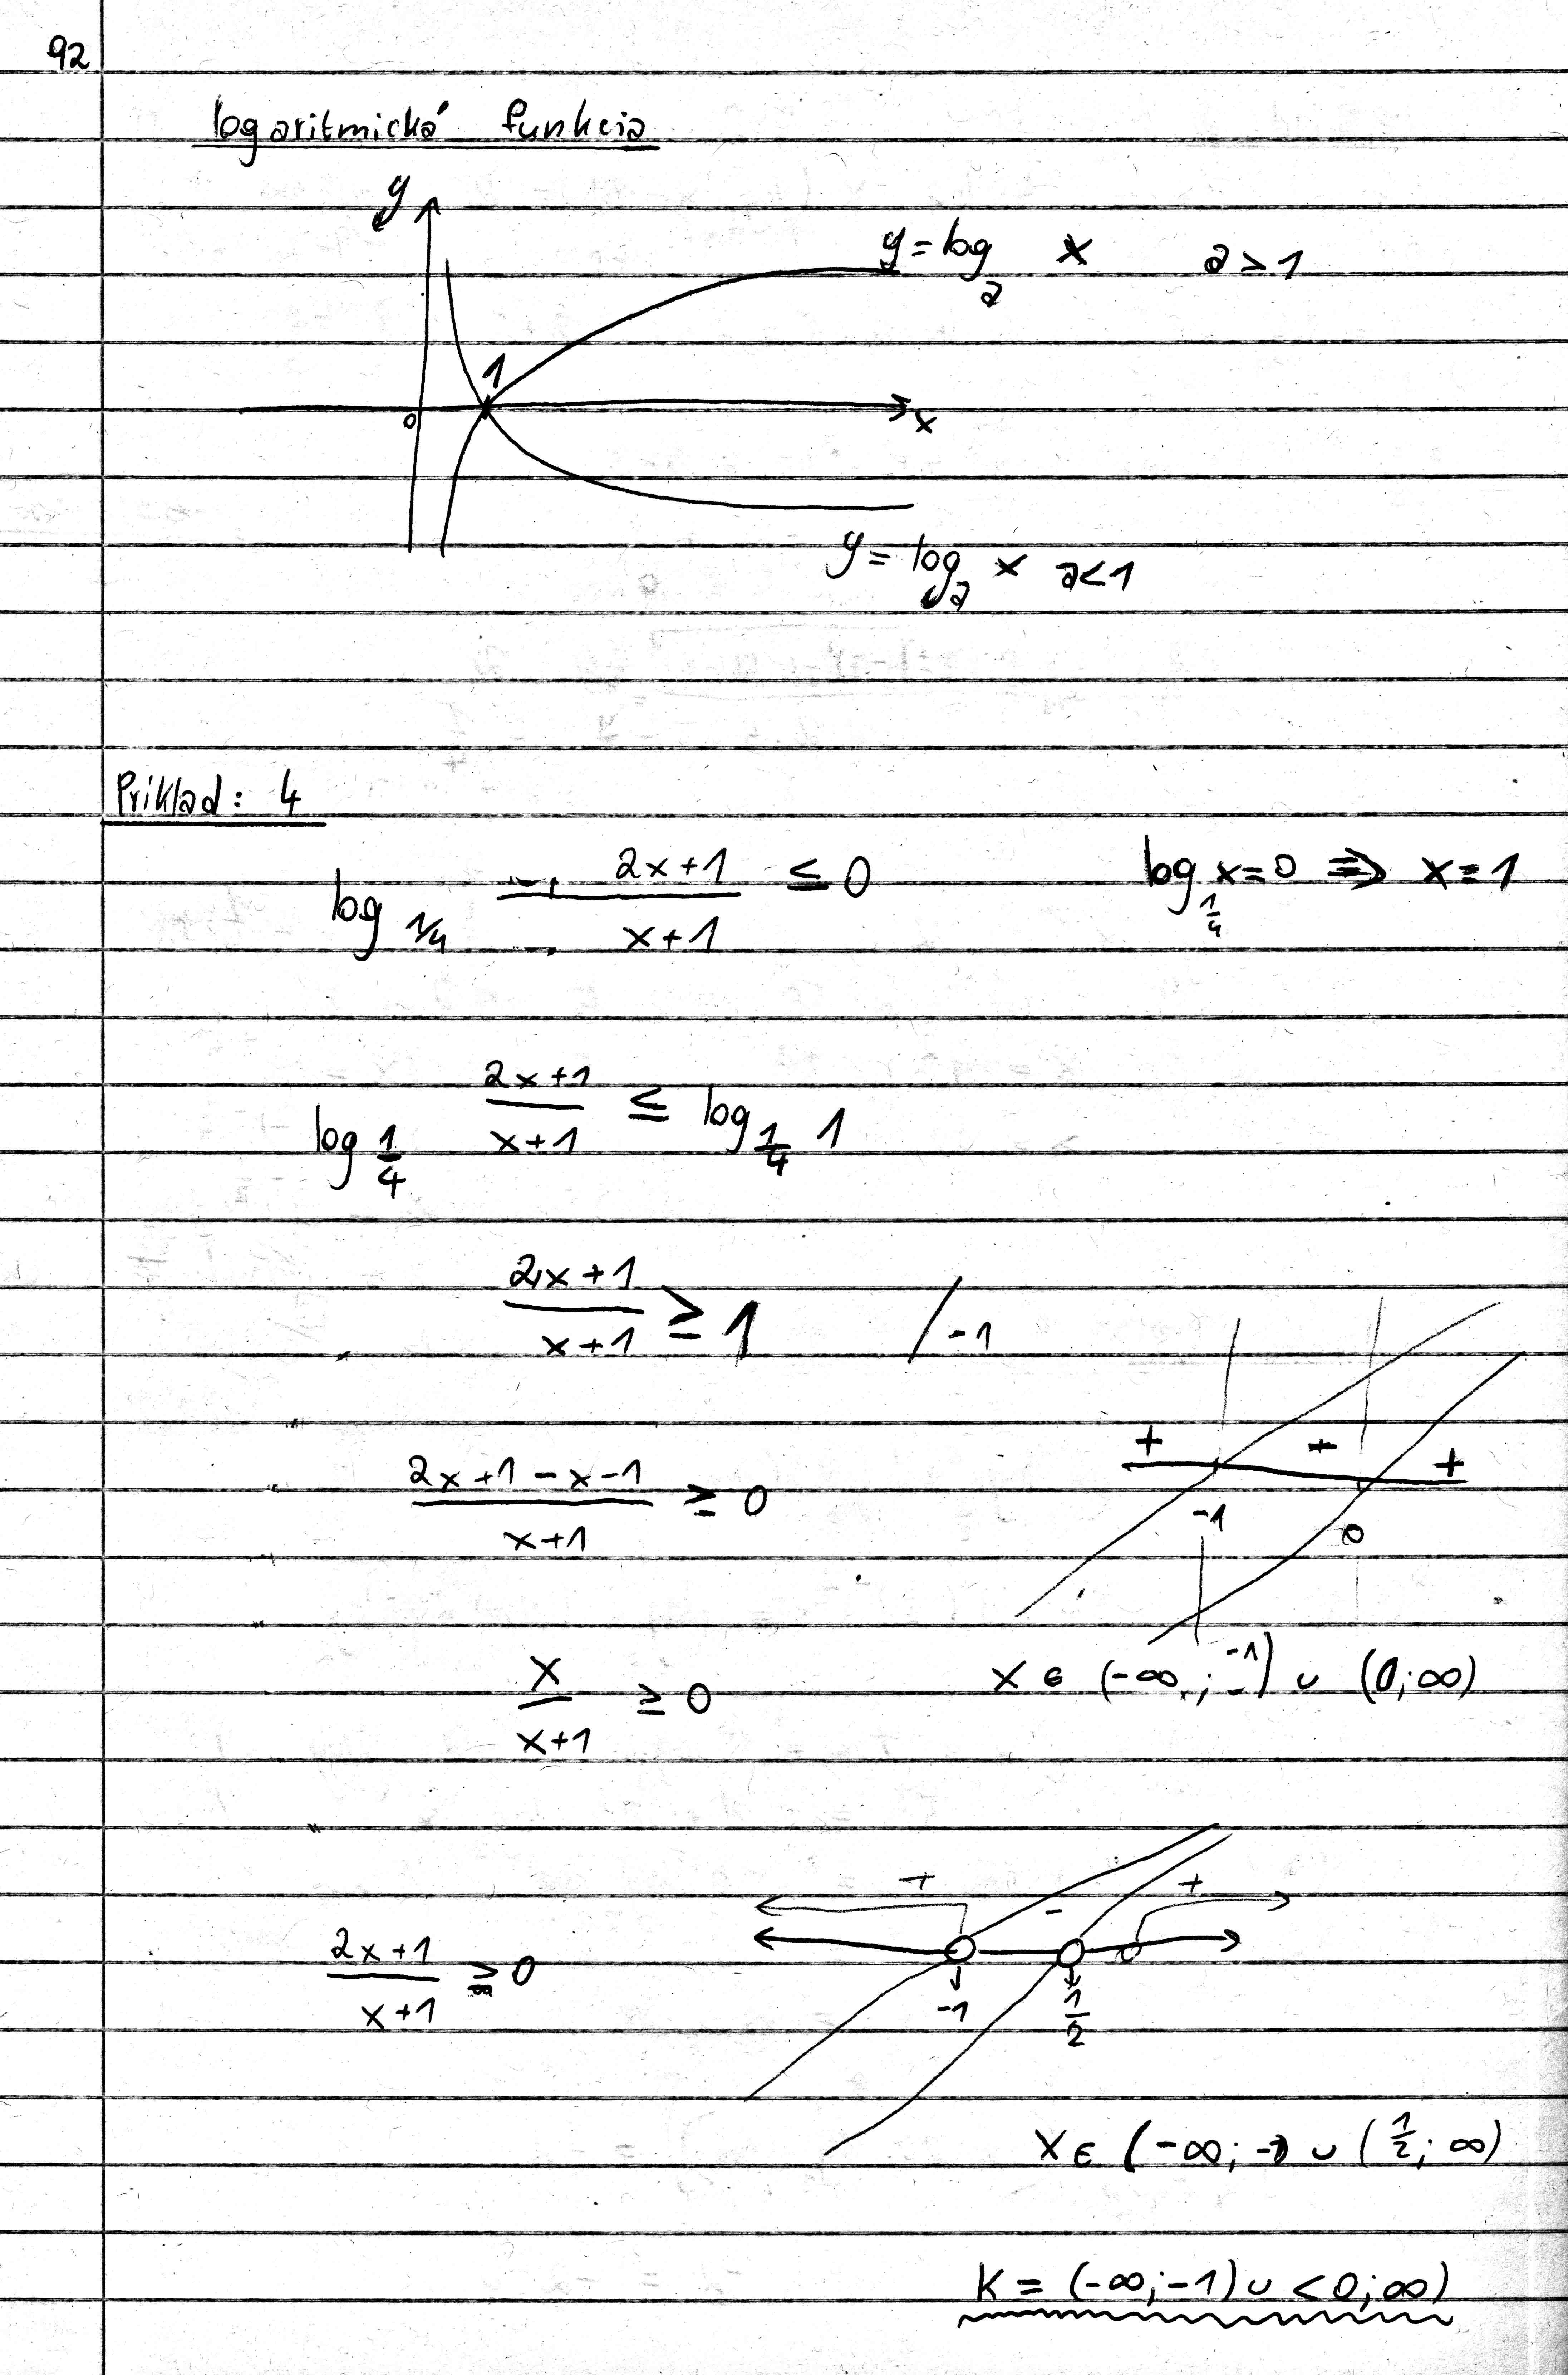 92
logaritmická funkcia
y
y = log_a x a > 1
1
0 x
y = log_a x a < 1
Príklad: 4
log_{1/4} (2x+1)/(x+1) ≤ 0 log_{1/4} x = 0 ⇒ x = 1
log_{1/4} (2x+1)/(x+1) ≤ log_{1/4} 1
(2x+1)/(x+1) ≥ 1 / -1
+ + +
(2x+1-x-1)/(x+1) ≥ 0
-1 0
x/(x+1) ≥ 0 x ∈ (-∞; -1) ∪ (0; ∞)
+ - +
(2x+1)/(x+1) ≥ 0
-1 1/2
x ∈ (-∞; -1) ∪ (1/2; ∞)
K = (-∞; -1) ∪ <0; ∞)